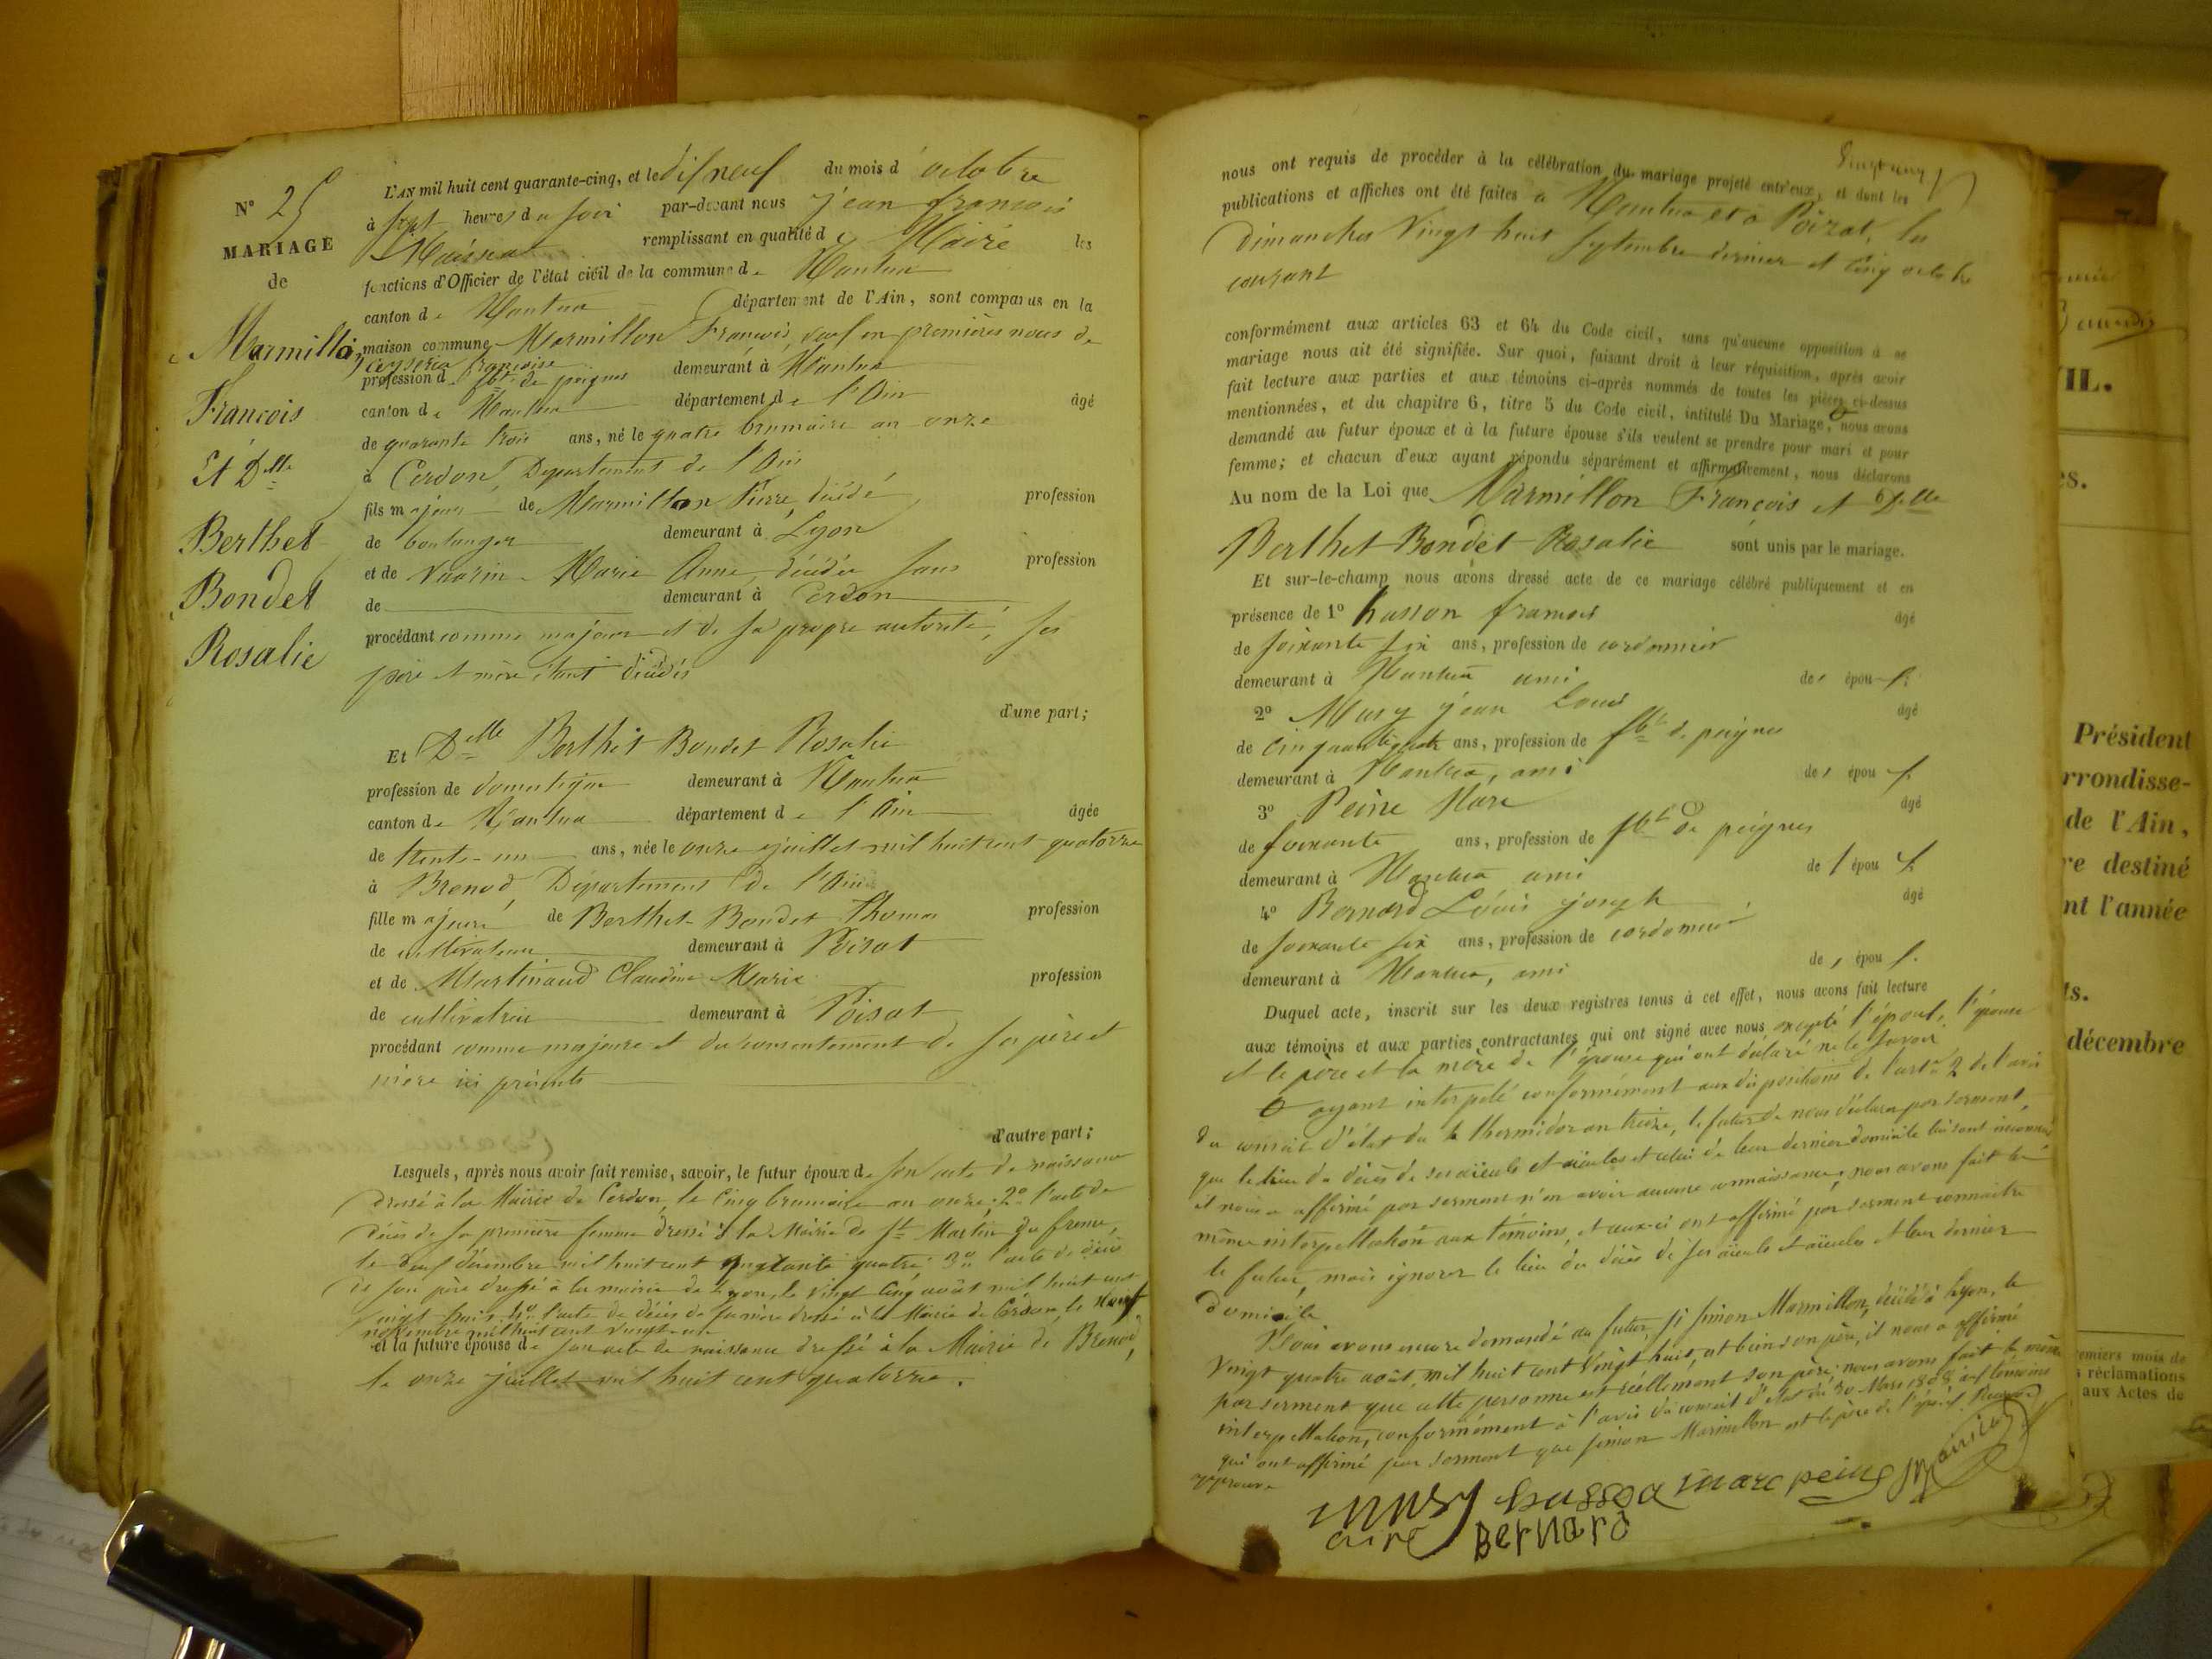 N° 25
MARIAGE
de
Marmillon
François
Et Dlle
Berthet
Bondet
Rosalie
L'AN mil huit cent quarante-cinq, et le dix neuf du mois d'octobre
à sept heures du soir par-devant nous jean françois
Maissiat remplissant en qualité de Maire les
fonctions d'Officier de l'état civil de la commune de Nantua
canton de Nantua département de l'Ain, sont comparus en la
maison commune Marmillon François, veuf en premières noces de
françoise
profession de fbt de peignes demeurant à Nantua
canton de Nantua département de l'Ain âgé
de quarante trois ans, né le quatre brumaire an onze
à Cerdon, Département de l'Ain
fils majeur de Marmillon Pierre, décédé profession
de boulanger demeurant à Lyon
et de Vuarin Marie Anne, décédée sans profession
de demeurant à Cerdon
procédant comme majeur et de sa propre autorité, ses
père et mère étant décédés
d'une part;
Et Dlle Berthet Bondet Rosalie
profession de domestique demeurant à Nantua
canton de Nantua département de l'Ain âgée
de trente-un ans, née le onze juillet mil huit cent quatorze
à Brenod, Département de l'Ain
fille majeure de Berthet Bondet Thomas profession
de cultivateur demeurant à Poizat
et de Martinand Claudine Marie profession
de cultivatrice demeurant à Poizat
procédant comme majeure et du consentement de ses père et
mère ici présents
d'autre part;
Lesquels, après nous avoir fait remise, savoir, le futur époux de son acte de naissance
dressé à la Mairie de Cerdon, le cinq brumaire an onze; 2° l'acte de
décès de sa première femme dressé à la Mairie de St Martin du frene,
le deux décembre mil huit cent quarante quatre; 3° l'acte de décès
de son père dressé à la mairie de Lyon, le vingt cinq août mil huit cent
vingt huit; 4° l'acte de décès de sa mère dressé à la Mairie de Cerdon, le neuf
novembre mil huit cent vingt
et la future épouse de son acte de naissance dressé à la Mairie de Brenod,
le onze juillet mil huit cent quatorze.
nous ont requis de procéder à la célébration du mariage projeté entr'eux, et dont les
publications et affiches ont été faites à Nantua et à Poizat, les
dimanches vingt huit septembre dernier et cinq octobre
courant
conformément aux articles 63 et 64 du Code civil, sans qu'aucune opposition à ce
mariage nous ait été signifiée. Sur quoi, faisant droit à leur réquisition, après avoir
fait lecture aux parties et aux témoins ci-après nommés de toutes les pièces ci-dessus
mentionnées, et du chapitre 6, titre 5 du Code civil, intitulé Du Mariage, nous avons
demandé au futur époux et à la future épouse s'ils veulent se prendre pour mari et pour
femme; et chacun d'eux ayant répondu séparément et affirmativement, nous déclarons
Au nom de la Loi que Marmillon François et Dlle
Berthet Bondet Rosalie sont unis par le mariage.
Et sur-le-champ nous avons dressé acte de ce mariage célébré publiquement et en
présence de 1° husson françois âgé
de soixante six ans, profession de cordonnier
demeurant à Nantua ami de l'époux
2° Mury jean Louis âgé
de cinquante quatre ans, profession de fbt de peignes
demeurant à Nantua, ami de l'époux
3° Peine Marc âgé
de soixante ans, profession de fbt de peignes
demeurant à Nantua ami de l'époux
4° Bernard Louis joseph âgé
de soixante six ans, profession de cordonnier
demeurant à Nantua, ami de l'époux
Duquel acte, inscrit sur les deux registres tenus à cet effet, nous avons fait lecture
aux témoins et aux parties contractantes qui ont signé avec nous excepté l'époux, l'épouse
et le père et la mère de l'épouse qui ont déclaré ne le savoir
ayant interpelé conformément aux dispositions de l'art. 2 de l'avis
du conseil d'état du 4 thermidor an treize, le futur de nous déclarer par serment
que le lieu du décès de ses aïeuls et aïeules et celui de leur dernier domicile lui sont inconnus
il nous a affirmé par serment n'en avoir aucune connaissance; nous avons fait la
même interpellation aux témoins, et ceux-ci ont affirmé par serment connaitre
le futur, mais ignorer le lieu du décès de ses aïeuls et aïeules et leur dernier
domicile
Nous avons encore demandé au futur, si simon Marmillon, décédé à Lyon, le
vingt quatre août, mil huit cent vingt huit, est bien son père, il nous a affirmé
par serment que cette personne est réellement son père; nous avons fait la même
interpellation, conformément à l'avis du conseil d'état du 30 Mars 1808 aux témoins
qui ont affirmé par serment que simon Marmillon est le père de l'époux.
approuvé
mury husson marc peine Maissiat
aire Bernard
VIL.
es.
Président
rrondisse-
de l'Ain,
re destiné
nt l'année
ts.
décembre
remiers mois de
s réclamations
aux Actes de